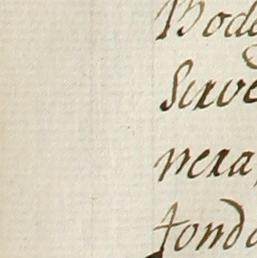 Bode
Serve
nera,
fonda